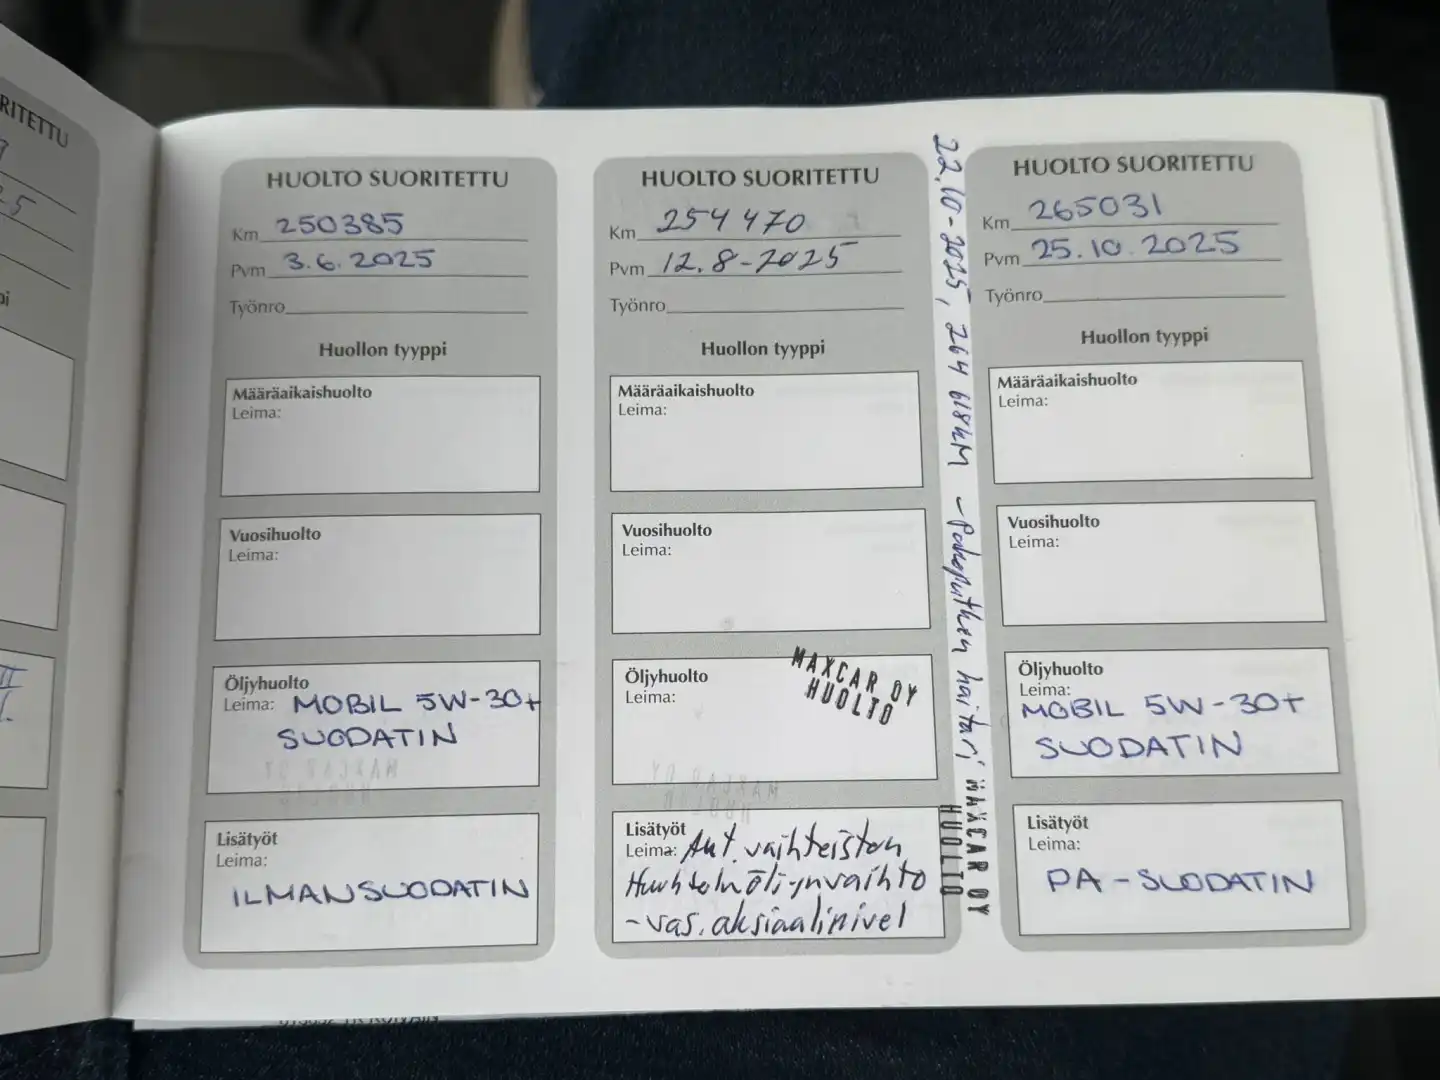 RITETTU
HUOLTO SUORITETTU
Km 250385
Pvm 3.6.2025
Työnro
Huollon tyyppi
Määräaikaishuolto
Leima:
Vuosihuolto
Leima:
Öljyhuolto
Leima: MOBIL 5W-30+
SUODATIN
Lisätyöt
Leima:
ILMANSUODATIN
HUOLTO SUORITETTU
Km 254 470
Pvm 12.8-2025
Työnro
Huollon tyyppi
Määräaikaishuolto
Leima:
Vuosihuolto
Leima:
Öljyhuolto
Leima:
MAXCAR OY
HUOLTO
Lisätyöt
Leima: Aut. vaihteiston
Huuhteluöljynvaihto
-vas. aksiaalinivel
22.10-2025, 264 618kM -Pakoputken haitari
MAXCAR OY
HUOLTO
HUOLTO SUORITETTU
Km 265031
Pvm 25.10.2025
Työnro
Huollon tyyppi
Määräaikaishuolto
Leima:
Vuosihuolto
Leima:
Öljyhuolto
Leima:
MOBIL 5W-30+
SUODATIN
Lisätyöt
Leima:
PA-SUODATIN